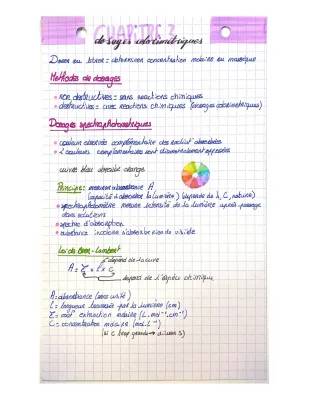 CHAPITRE 3
dosages colorimétriques
Doser ou titrer = déterminer concentration molaire ou massique
Méthodes de dosages
• non destructives = sans réactions chimiques
• destructives = avec réactions chimiques (dosages colorimétriques)
Dosages spectrophotométriques
• couleur absorbée complémentaire des
• 2 couleurs complémentaires sont diamétralement opposées
cuivre bleu absorbe orange
Principe: mesurer absorbance A
(capacité à absorber la lumière) (dépend de λ, C, nature)
• spectrophotomètre mesure intensité de la lumière après passage
dans solutions
• spectre d'absorption
• substance incolore n'absorbe rien du visible
Loi de Beer-Lambert
dépend de la cuve
A = Σ × l × C
dépend de l'espèce chimique
A = absorbance (sans unité)
l = longueur traversée par la lumière (cm)
Σ = coef extinction molaire (L.mol⁻¹.cm⁻¹)
C = concentration molaire (mol.L⁻¹)
(si C trop grande → diluer S)